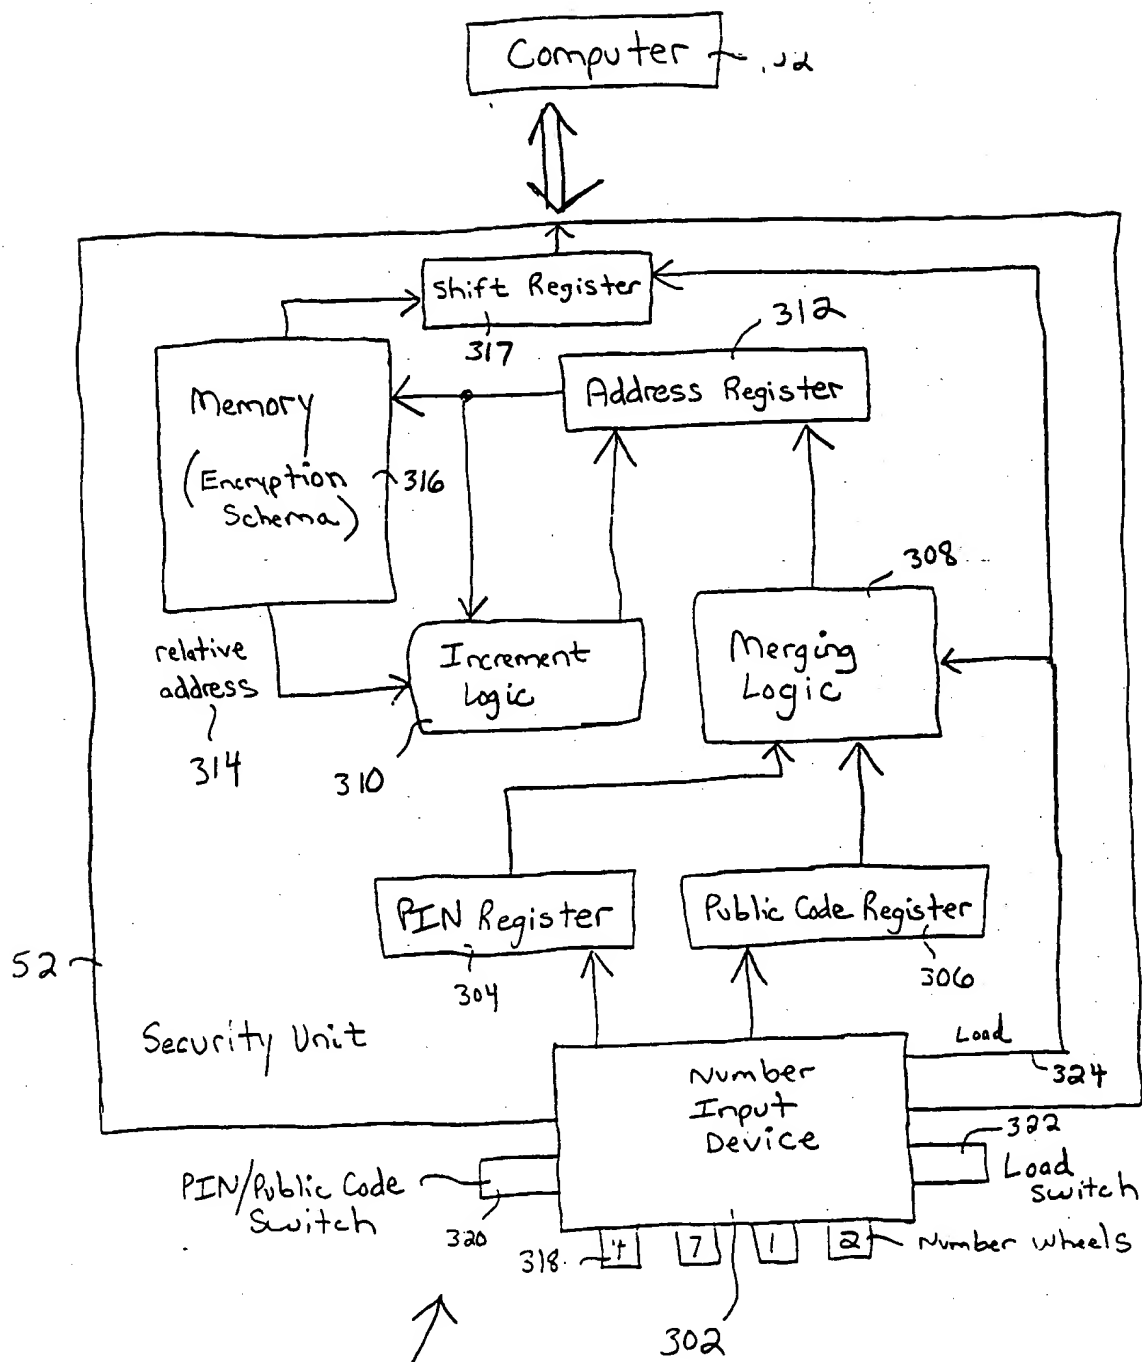 Computer
Shift Register
317
312
Address Register
Memory
(Encryption
Schema)
316
308
Increment
Logic
310
Merging
Logic
relative
address
314
PIN Register
304
Public Code Register
306
52
Security Unit
Load
324
Number
Input
Device
322
Load
Switch
PIN/Public Code
Switch
320
318
4 7 1 2
Number Wheels
302